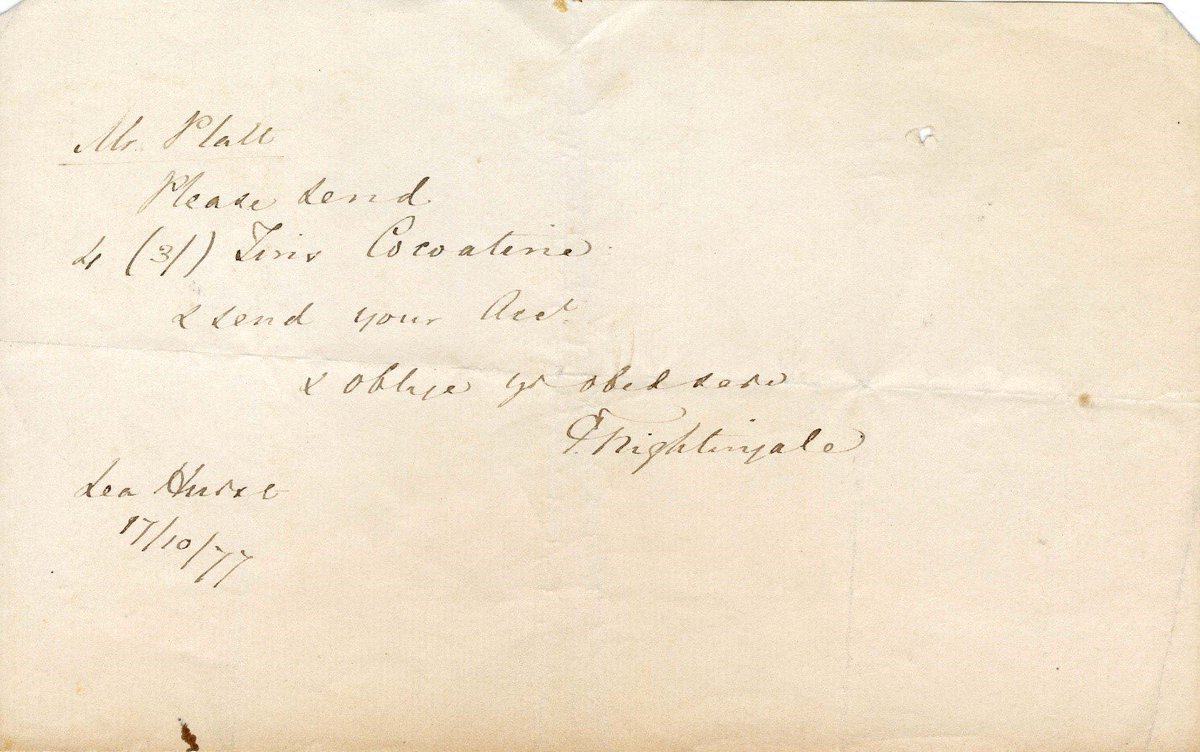 Mr. Platt
Please send
4 (3/) Tins Cocoatina
& send your Acct.
& oblige yr obed serv
F. Nightingale
Lea Hurst
17/10/77